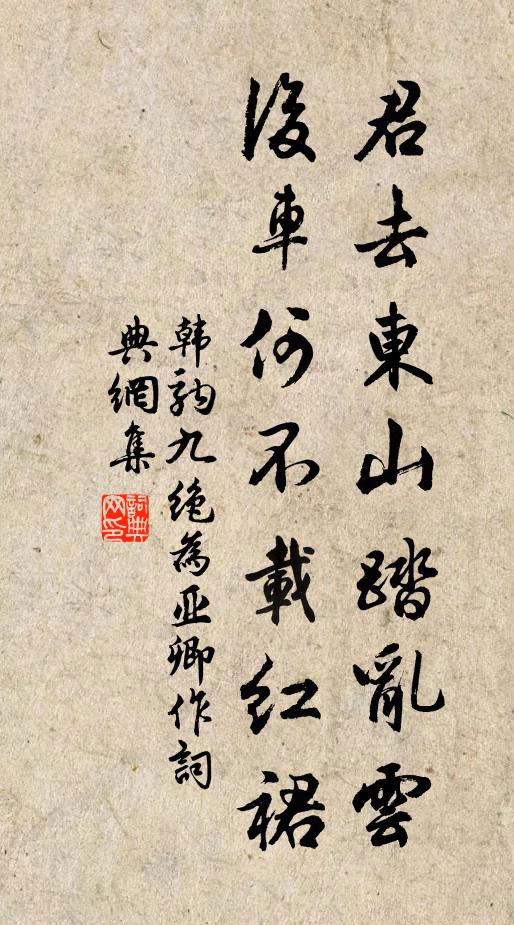 君去東山踏亂雲
後車何不載紅裙
韩駒九绝為亚卿作詞
典網集
詞典网印